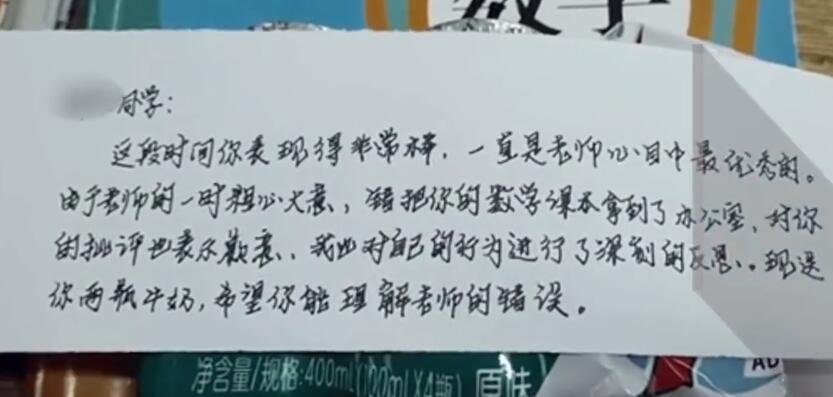 数学
同学：
这段时间你表现得非常棒，一直是老师心目中最优秀的。
由于老师的一时粗心大意，错把你的数学课本拿到了办公室，对你
的批评也表示歉意、我也对自己的行为进行了深刻的反思。现送
你两瓶牛奶，希望你能理解老师的错误。
净含量/规格:400mL(100mLX4瓶) 原味
AD